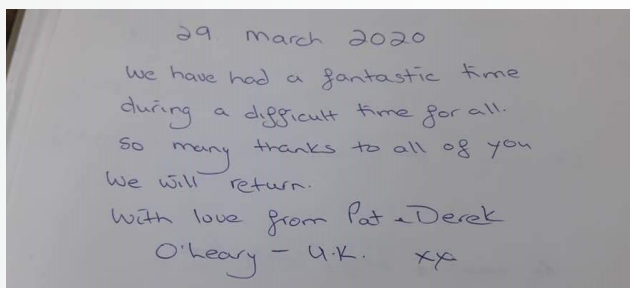 29 March 2020
We have had a fantastic time
during a difficult time for all.
So many thanks to all of you
We will return.
With love from Pat & Derek
O'Leary - U.K. xx